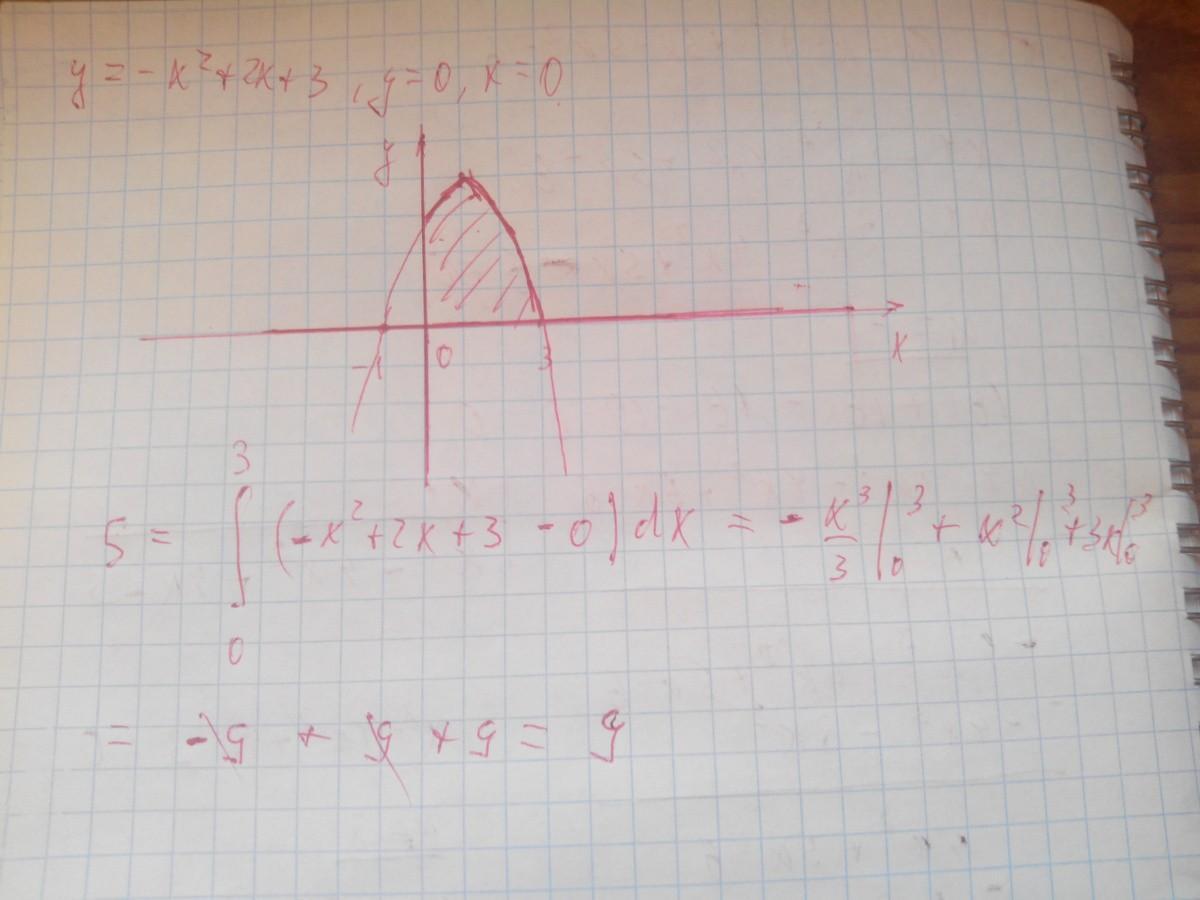 y = -x²+2x+3, y=0, x=0
y
-1 0 3 x
S = ∫₀³ (-x²+2x+3-0)dx = - x³/3 |₀³ + x² |₀³ + 3x|₀³
= -9 + 9 + 9 = 9